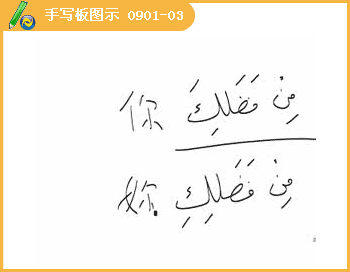 手写板图示 0901-03
你 مِنْ فَضْلِكَ
妳 مِنْ فَضْلِكِ